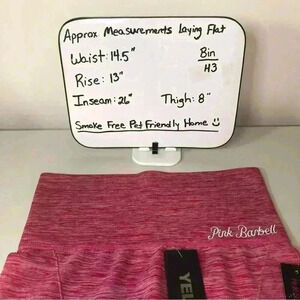 Approx Measurements Laying Flat
Waist: 14.5" Bin
Rise: 13" 43
Inseam: 26" Thigh: 8"
Smoke Free Pet Friendly Home
Pink Barbell
YEL